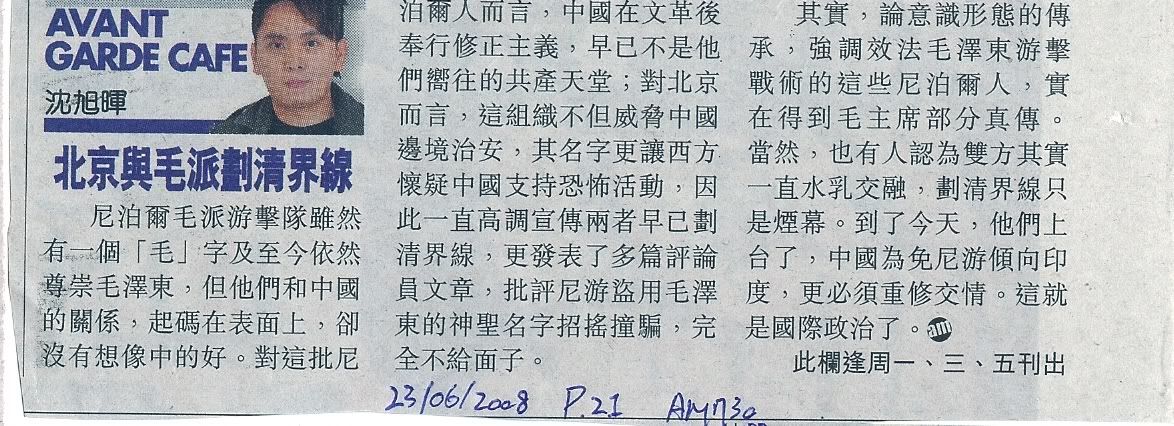 AVANT
GARDE CAFE
沈旭暉
北京與毛派劃清界線
尼泊爾毛派游擊隊雖然
有一個「毛」字及至今依然
尊崇毛澤東，但他們和中國
的關係，起碼在表面上，卻
沒有想像中的好。對這批尼
泊爾人而言，中國在文革後
奉行修正主義，早已不是他
們嚮往的共產天堂；對北京
而言，這組織不但威脅中國
邊境治安，其名字更讓西方
懷疑中國支持恐怖活動，因
此一直高調宣傳兩者早已劃
清界線，更發表了多篇評論
員文章，批評尼游盜用毛澤
東的神聖名字招搖撞騙，完
全不給面子。
其實，論意識形態的傳
承，強調效法毛澤東游擊
戰術的這些尼泊爾人，實
在得到毛主席部分真傳。
當然，也有人認為雙方其實
一直水乳交融，劃清界線只
是煙幕。到了今天，他們上
台了，中國為免尼游傾向印
度，更必須重修交情。這就
是國際政治了。am
此欄逢周一、三、五刊出
23/06/2008 P.21 AM730